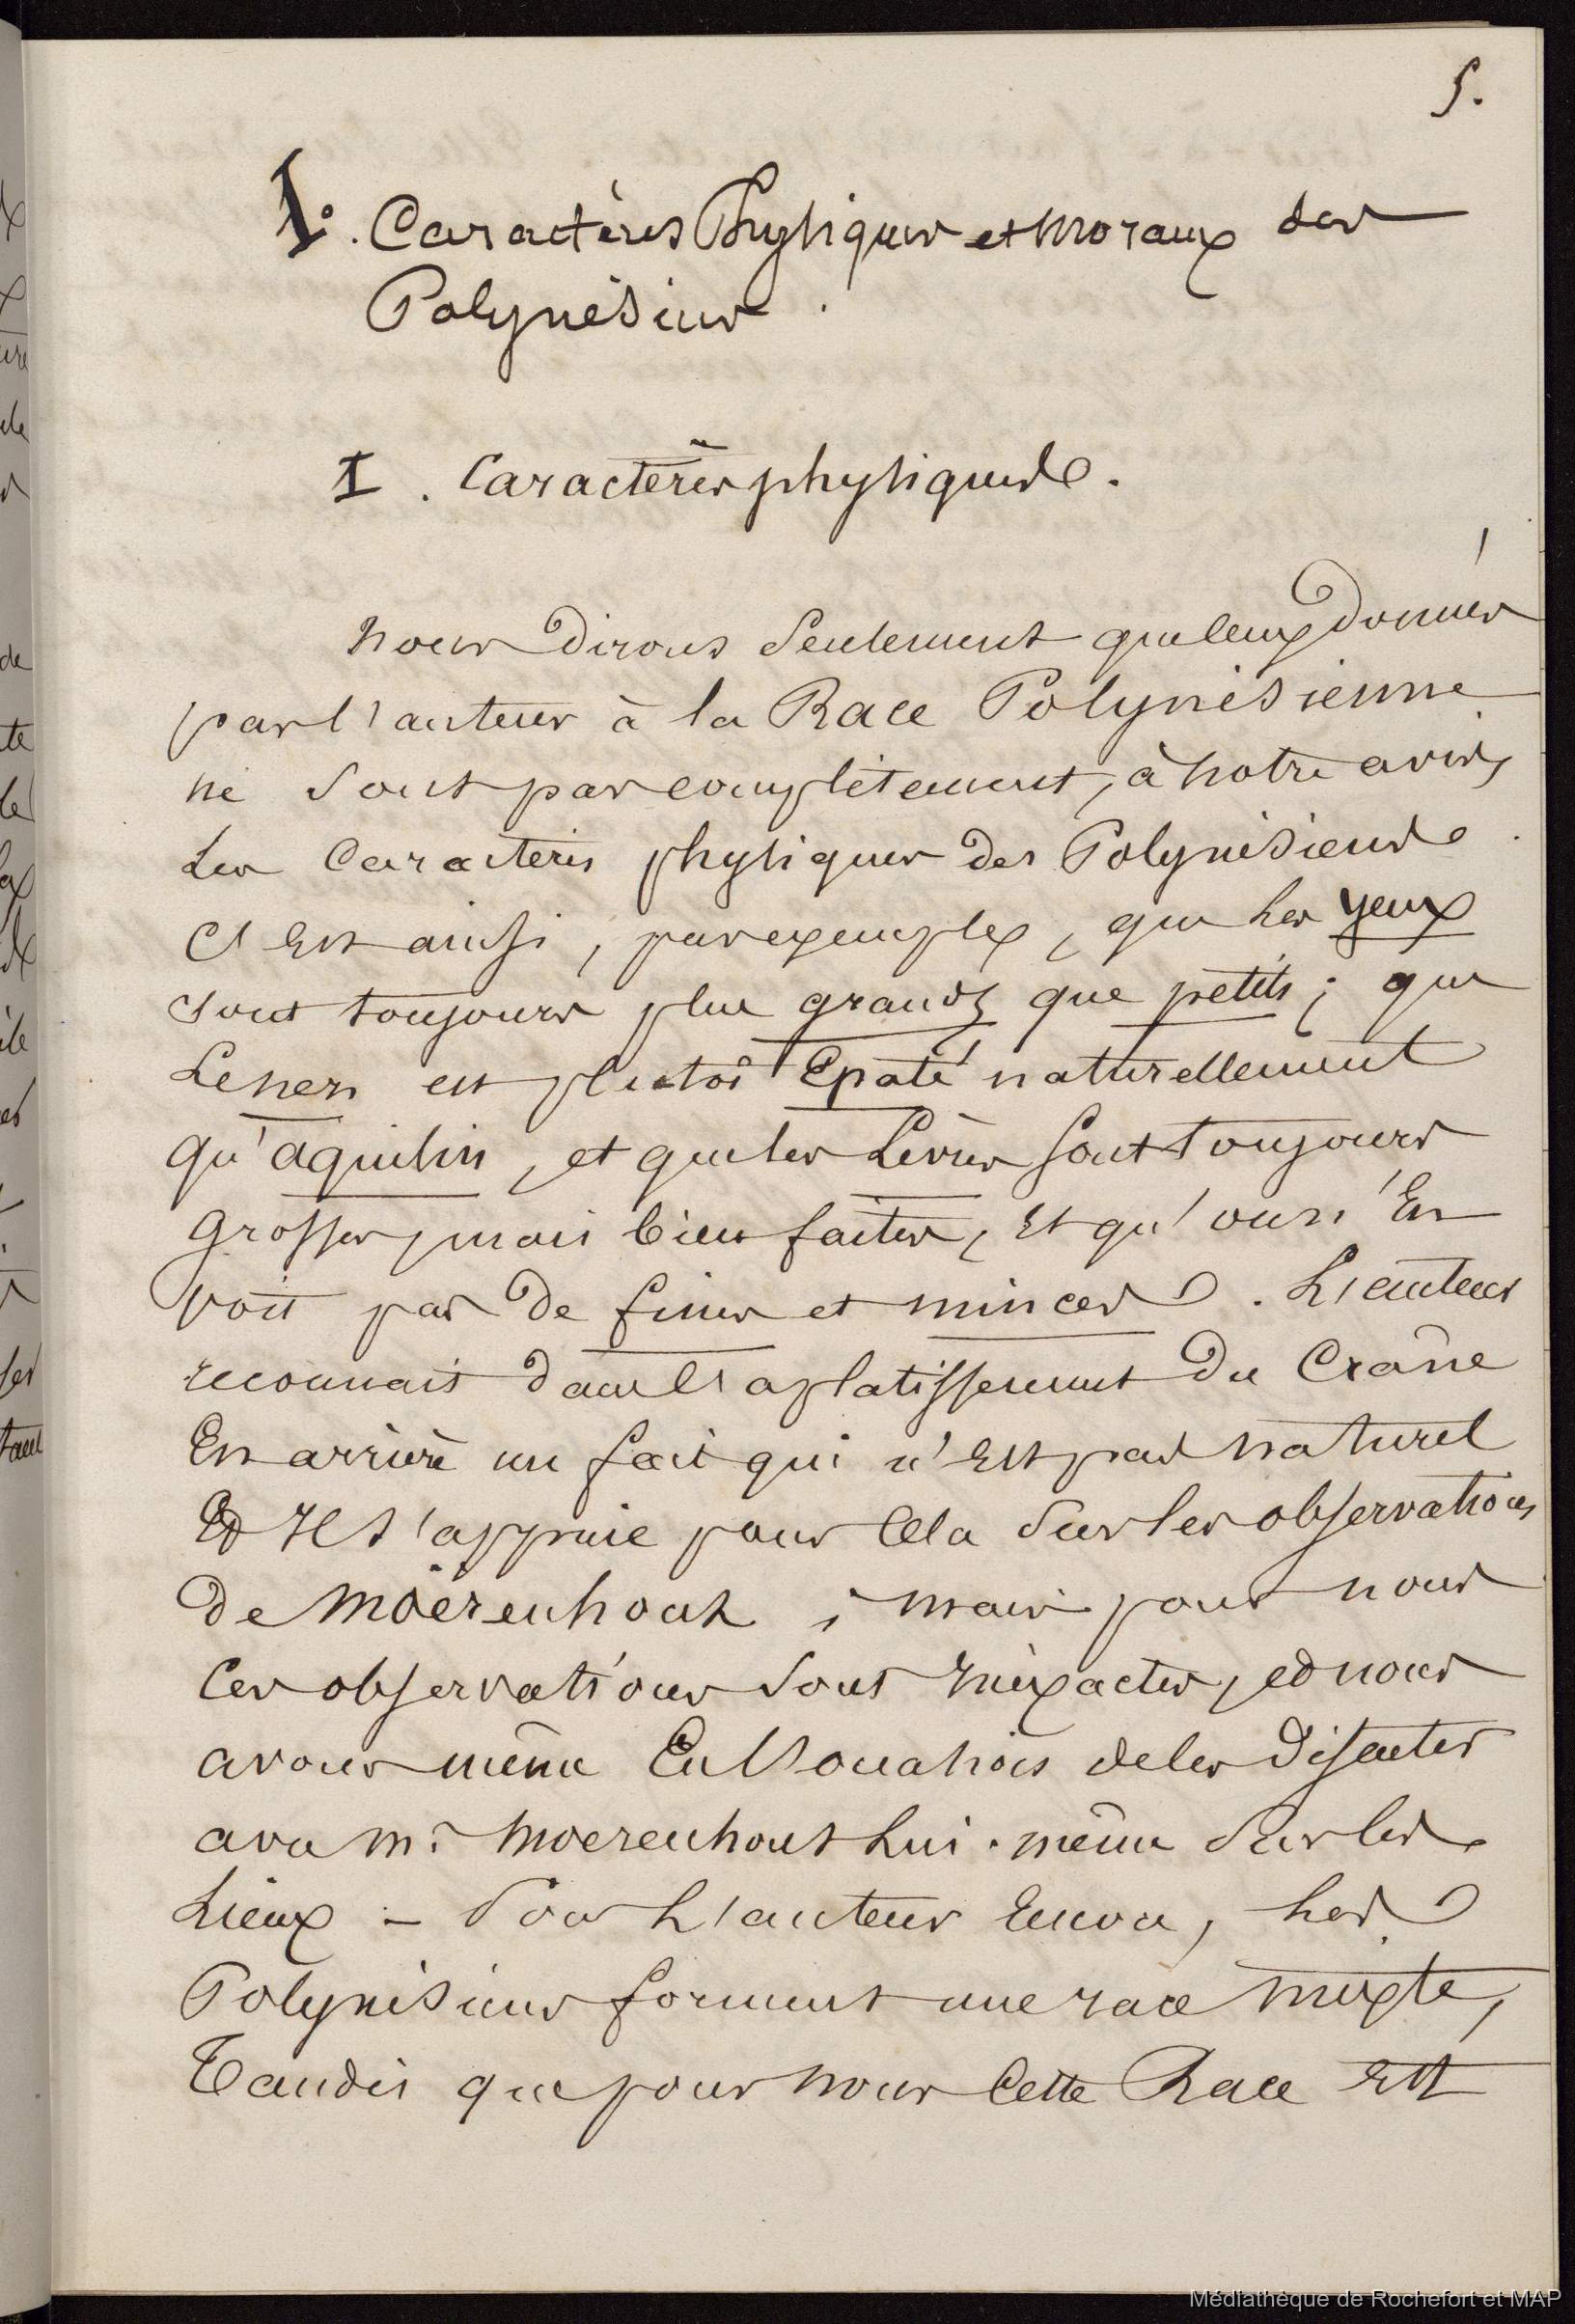 5.
1°. Caractères Physiques et moraux des
Polynésiens.
I. Caractères physiques.
Nous dirons seulement que ceux donnés
par l'auteur à la Race Polynésienne
ne sont pas complètement, à notre avis,
les caractères physiques des Polynésiens.
C'est ainsi, par exemple, que les yeux
sont toujours plus grands que petits; que
le nez est plutôt Epaté naturellement
qu'aquilin, et que les Lèvres sont toujours
grosses, mais bien faites, et qu'on n'en
voit pas de fines et minces. L'auteur
reconnait dans l'aplatissement du Crâne
En arrière un fait qui n'est pas naturel
Et Il s'appuie pour cela sur les observations
de Moërenhout; mais pour nous
ces observations sont inexactes, et nous
avons même Eu l'occasion de les discuter
avec Mr Moerenhout lui-même sur les
Lieux – Pour L'auteur encore, les
Polynésiens forment une race mixte,
Tandis que pour nous cette Race est
Médiathèque de Rochefort et MAP